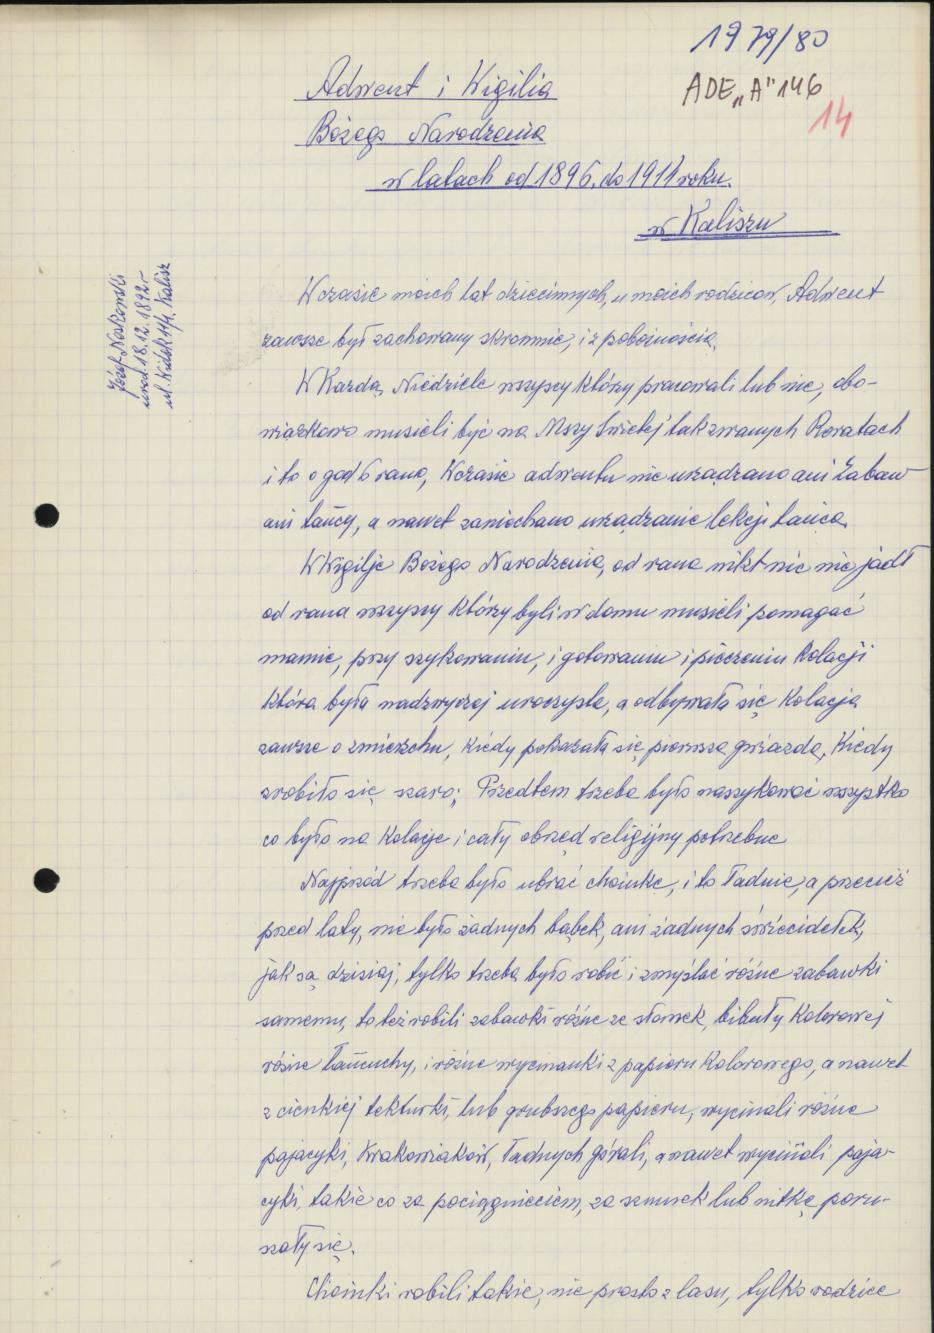 1979/80
ADE „A" 146
14
Adwent i Wigilia
Bożego Narodzenia
w latach od 1896. do 1911 roku.
w Kaliszu
Józef Noskowski
urod. 18.12.1892 r
Kalisz
W czasie moich lat dziecinnych, u moich rodziców, Adwent
zawsze był zachowany skromnie, i z pobożnością,
W Każdą Niedziele wszyscy którzy pracowali lub nie, obo-
wiązkowo musieli być na Mszy Świetej tak zwanych Roratach
i to o god 6 rano, W czasie adwentu nie urządzano ani Zabaw
ani tańcy, a nawet zaniechano urządzanie lekcji tańca,
W Wigilje Bożego Narodzenia, od rana nikt nic nie jadł
od rana wszyscy którzy byli w domu musieli pomagać
mamie, przy szykowaniu, i gotowaniu i pieczeniu Kolacji
która była nadzwyczaj uroczysta, a odbywała się Kolacja
zawsze o zmierzchu, kiedy pokazała się pierwsza gwiazda, Kiedy
zrobiło się szaro; Przedtem trzeba było naszykować wszystko
co było na Kolacje i cały obrzęd religijny potrzebne
Najprzód trzeba było ubrać choinke, i to ładnie, a przecież
przed laty, nie było żadnych bąbek, ani żadnych świecidełek,
jak są dzisiaj, tylko trzeba było robić i zmyślać różne zabawki
samemu, to też robili zabawki różne ze słomek, bibuły Kolorowej
różne łańcuchy, i różne wycinanki z papieru Kolorowego, a nawet
z cienkiej tekturki, lub grubszego papieru, wycinali różne
pajacyki, Krakowiaków, Ładnych górali, a nawet wycinali paja-
cyki, takie co za pociągnięciem, za sznurek lub nitkę poru-
szały się.
Choinki robili takie, nie prosto z lasu, tylko rodzice